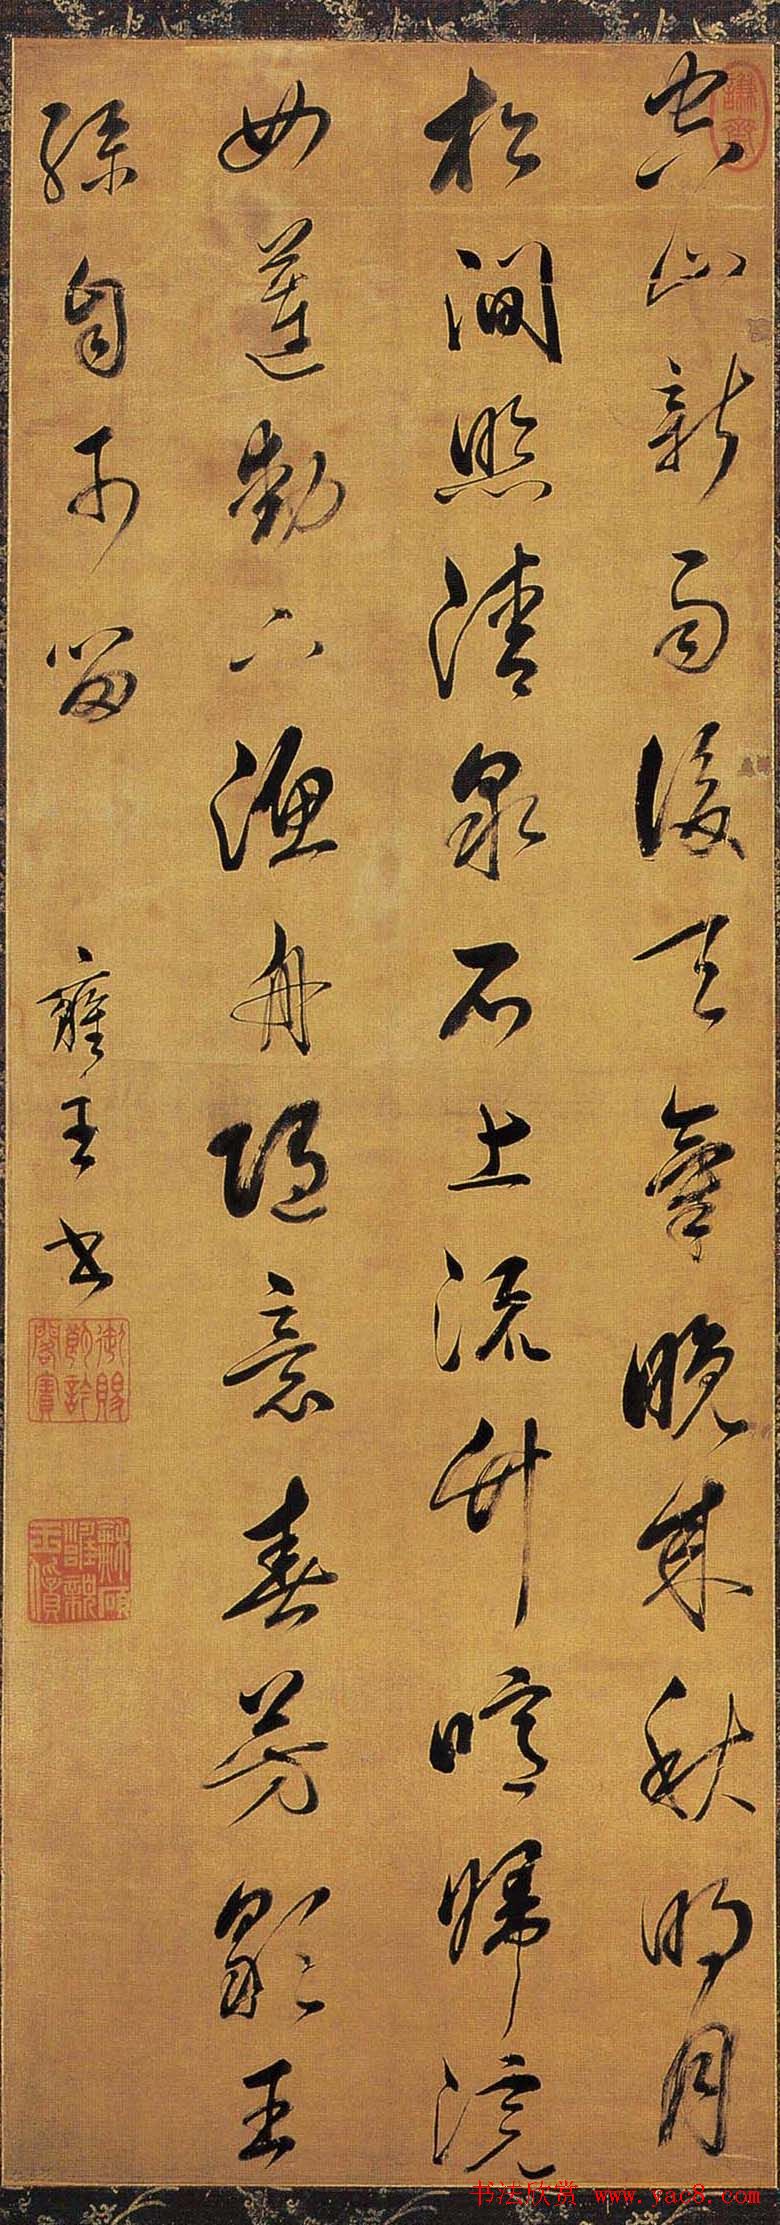 謙齋
空山新雨後天氣晚來秋明月
松間照清泉石上流竹喧歸浣
女蓮動下漁舟隨意春芳歇王
孫自可留
雍王書
御賜朗吟閣寶
龢碩雍親王寶
书法欣赏 www.yac8.com